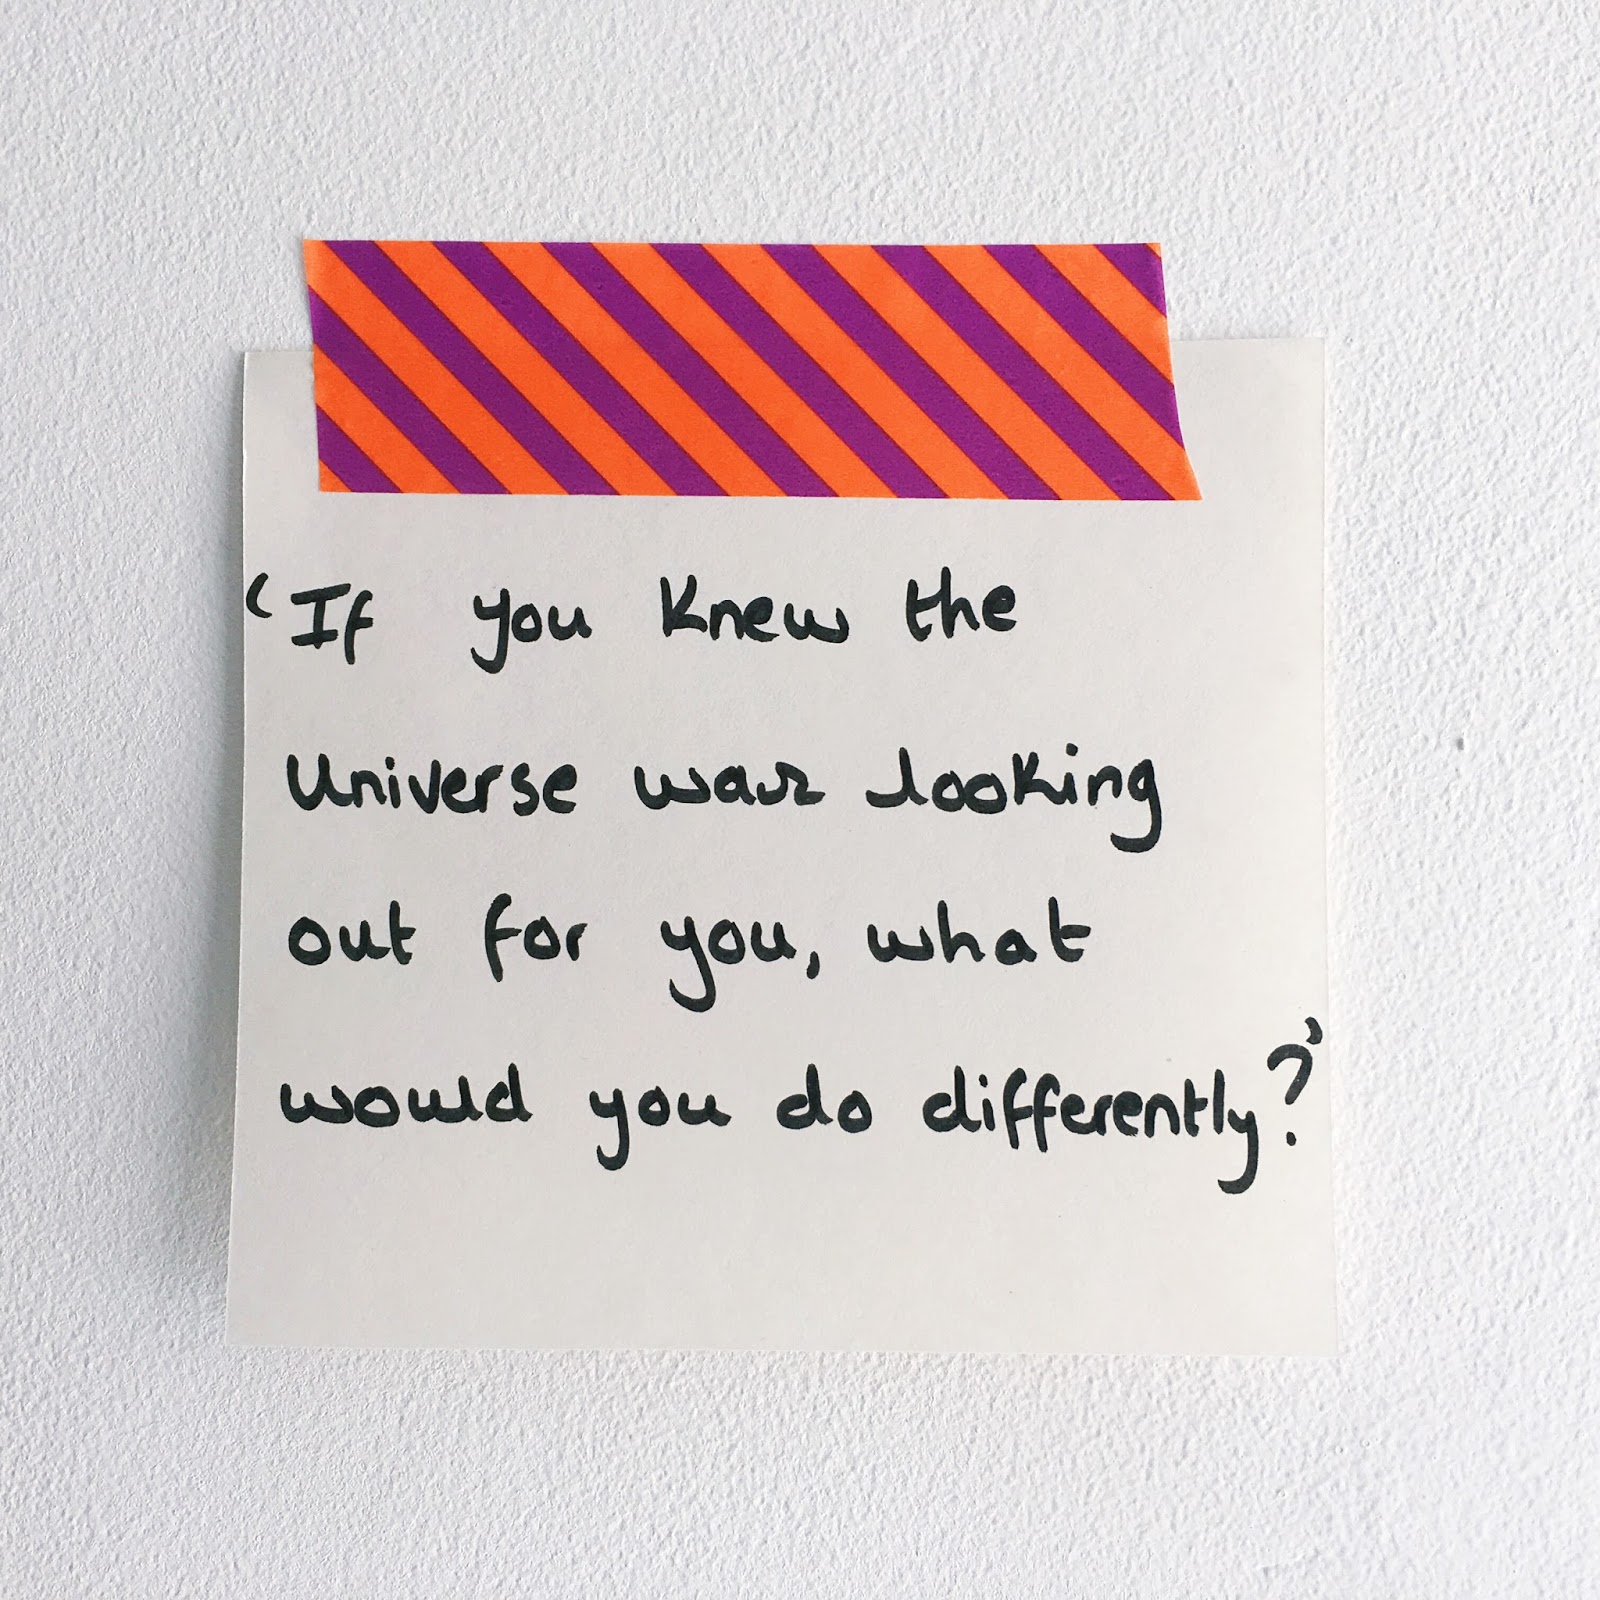 'If you knew the
Universe was looking
out for you, what
would you do differently?'